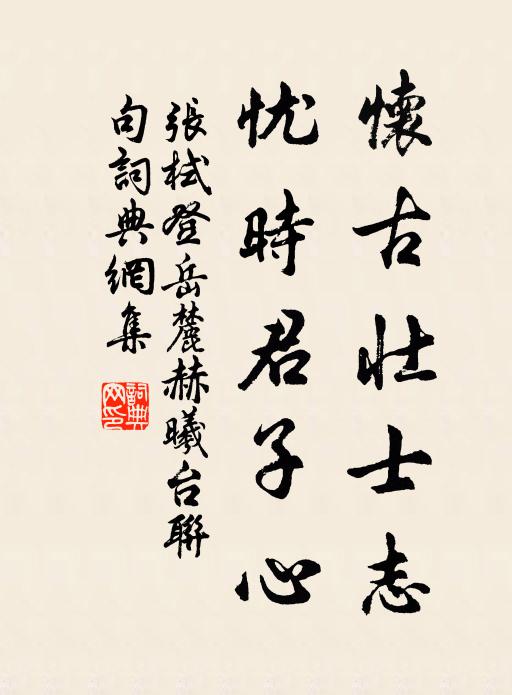 懷古壯士志
忧時君子心
張栻登岳麓赫曦台聯
句詞典網集
詞典
网印